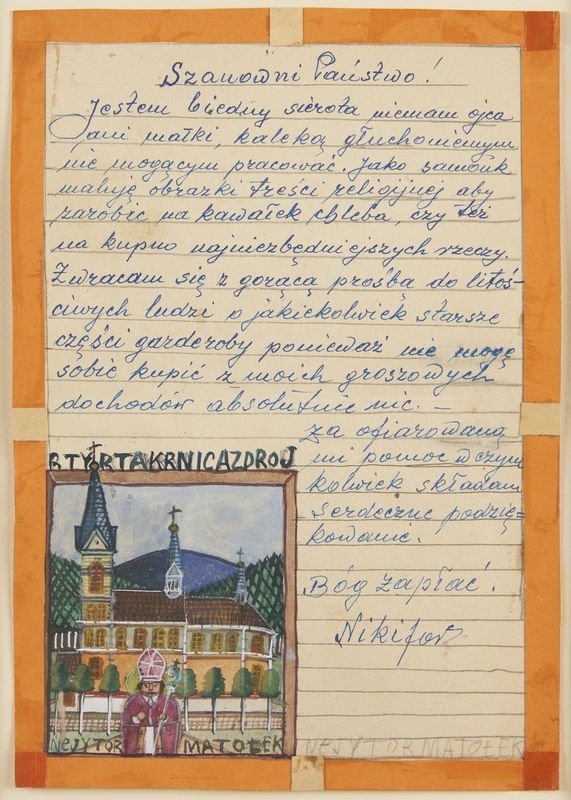 Szanowni Państwo!
Jestem biedny sierota niemam ojca
ani matki, kaleką głuchoniemym
nie mogącym pracować. Jako samouk
maluję obrazki treści religijnej aby
zarobić na kawałek chleba, czy też
na kupno najniezbędniejszych rzeczy.
Zwracam się z gorącą prośbą do litoś-
ciwych ludzi o jakiekolwiek starsze
części garderoby ponieważ nie mogę
sobie kupić z moich groszowych
dochodów absolutnie nic. —
Za ofiarowaną
mi pomoc w czym
kolwiek składam
serdeczne podzię=
kowanie.
Bóg zapłać.
Nikifor
BTYRTAKRNICAZDROJ
NEJYTOR MATOŁEK
NEJYTOR MATOŁEK